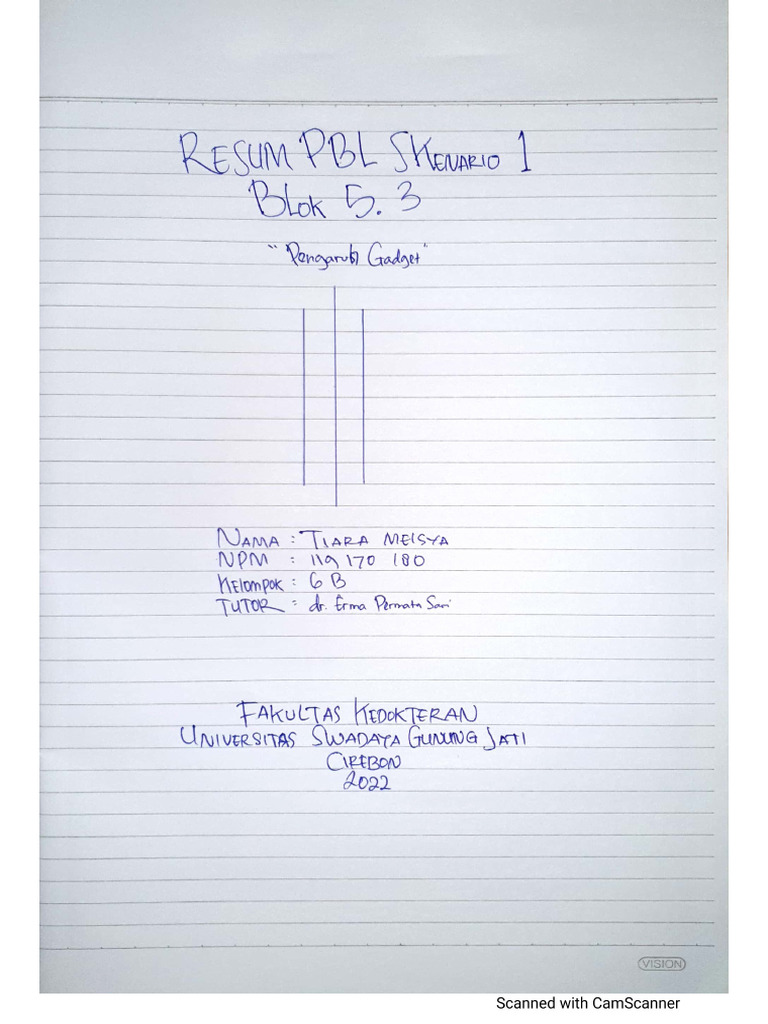 RESUM PBL SKENARIO 1
BLOK 5.3
"Pengaruh Gadget"
NAMA : TIARA MEISYA
NPM : 119 170 180
Kelompok : 6 B
TUTOR : dr. Erma Permata Sari
FAKULTAS KEDOKTERAN
UNIVERSITAS SWADAYA GUNUNG JATI
CIREBON
2022
VISION
Scanned with CamScanner